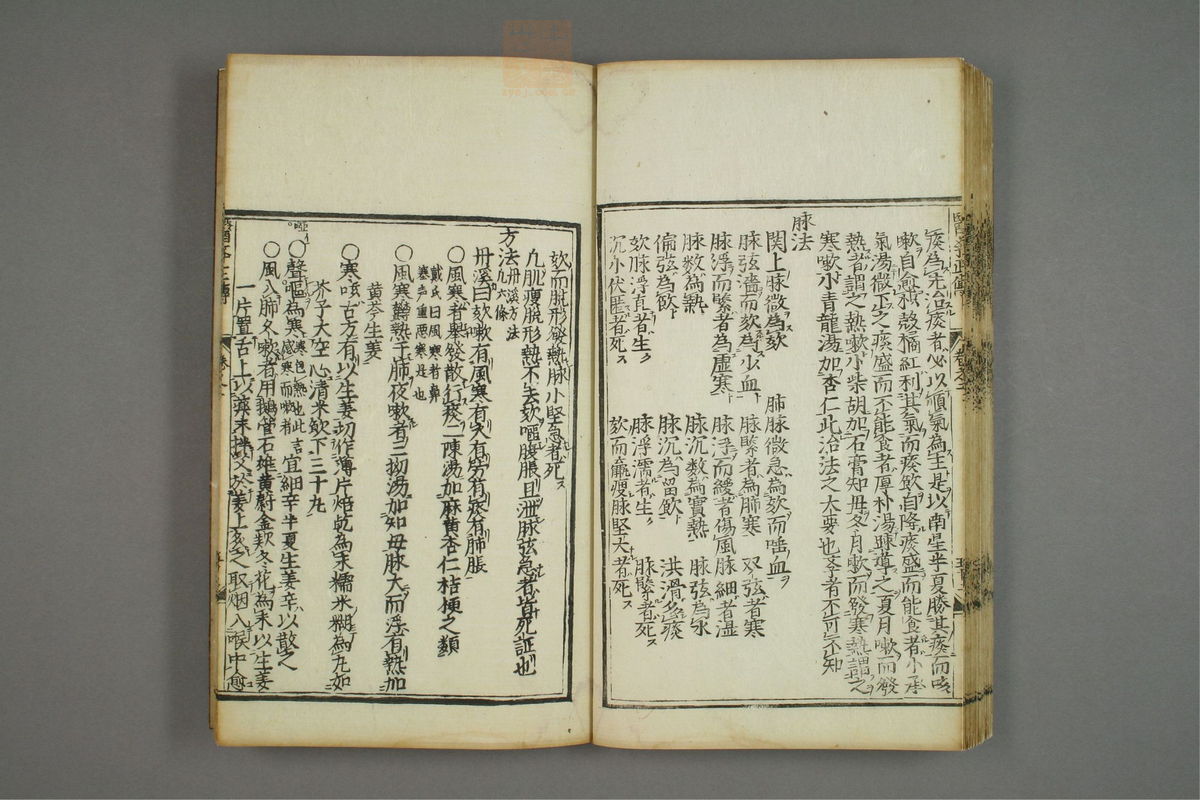 痰為先治痰者必以順氣為主是以南星半夏勝其痰而咳
嗽自愈枳殼橘紅利其氣而痰飲自降痰盛而能食者小承
氣湯微下之痰盛而不能食者厚朴湯疎導之夏月嗽而發
熱者謂之熱嗽小柴胡加石膏知母冬月嗽而發寒熱謂之
寒嗽小青龍湯加杏仁此治法之大要也孝者不可不知
脉法
関上脉微為欬 肺脉微急為欬而唾血
脉弦濇而欬為少血 脉緊者為肺寒 双弦者寒
脉浮而緊者為虚寒 脉浮而緩者傷風 脉細者湿
脉数為熱 脉沉数為實熱 脉弦為水
偏弦為飲 脉沉為留飲 洪滑多痰
欬脉浮直者生 脉浮濡者生 脉緊者死
沉小伏匿者死 欬而羸瘦脉堅大者死
欬而脱形發熱脉小堅急者死
九肌瘦脱形熱不去欬嘔腹脹且泄脉弦急者皆死証也
方法 丹溪方法九六條
丹溪曰欬嗽有風寒有火有勞有痰有肺脹
○風寒者舉發散行痰二陳湯加麻黄杏仁桔梗之類
戴氏曰風寒者鼻
寒声重悪寒是也
○風寒欝熱于肺夜嗽者三拗湯加知母脉大而浮有熱加
黄芩生姜
○寒嗽古方有以生姜切作薄片焙乾為末糯米糊為丸如
芥子大空心清米飲下三十九
○聲嗢為寒寒包熱也此言感寒而嗽者宜細辛半夏生姜辛以散之
○風入肺久嗽者用鵝管石雄黄欝金款冬花為末以生姜
一片置舌上以藥末摻艾於姜上灸之取烟入喉中愈